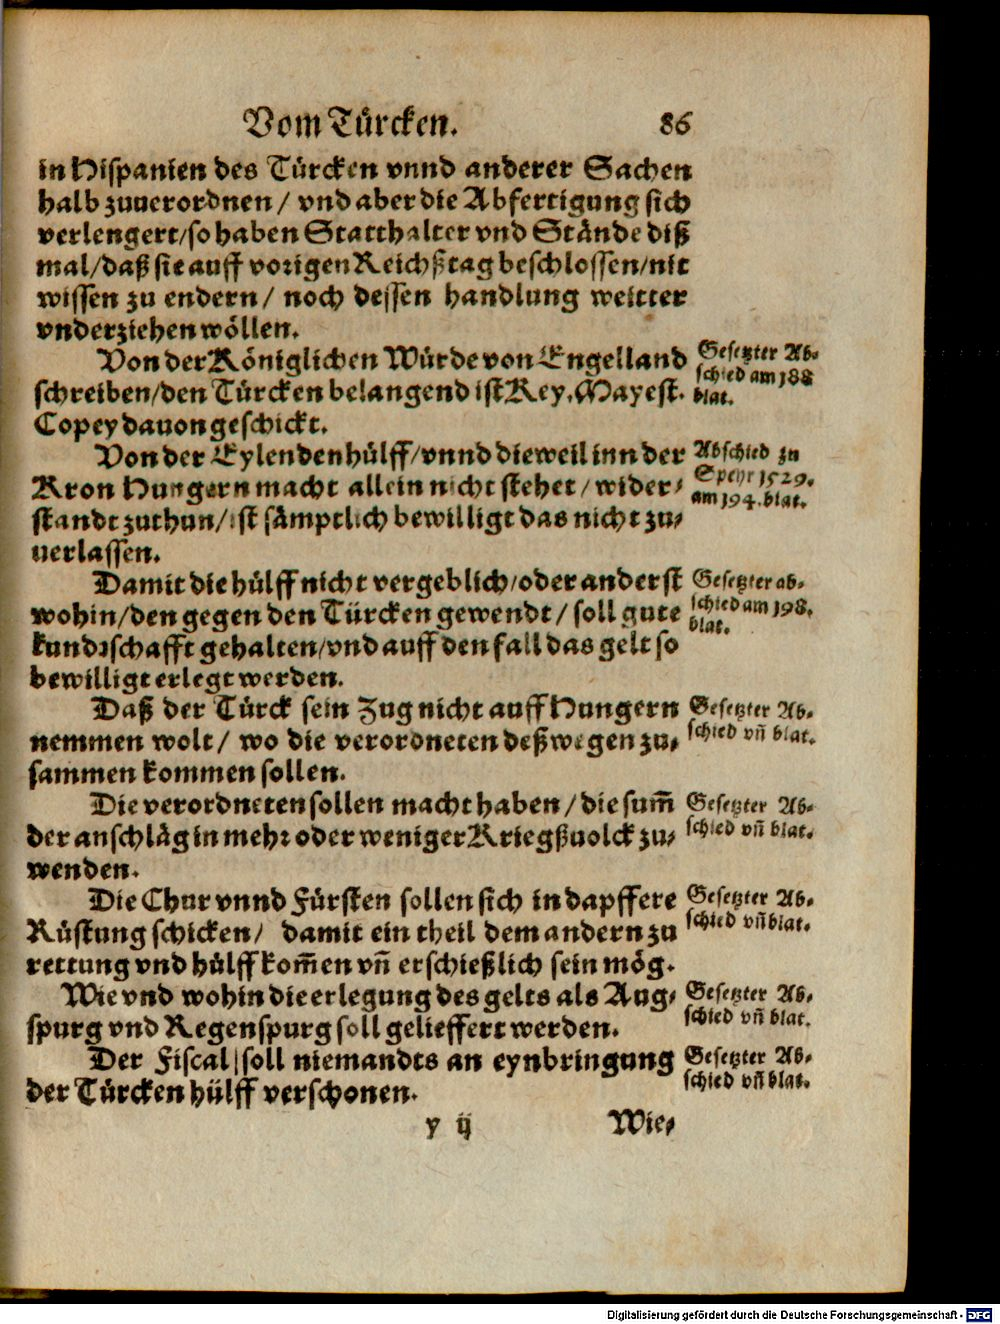 Vom Türcken. 86
in Hispanien des Türcken vnnd anderer Sachen
halb zuuerordnen / vnd aber die Abfertigung sich
verlengert/so haben Statthalter vnd Stände diß
mal/daß sie auff vorigen Reichßtag beschlossen/nit
wissen zu endern / noch dessen handlung weitter
vnderziehen wöllen.
Von der Königlichen Würde von Engelland
schreiben/den Türcken belangend ist Key. Mayest.
Copey dauon geschickt.
Gesetzter Ab-
schied am 188
blat.
Von der Eylenden hülff/vnnd dieweil inn der
Kron Hungern macht allein nicht stehet / wider-
standt zuthun/ist sämptlich bewilligt das nicht zu-
uerlassen.
Abschied zu
Speyr 1529.
am 194. blat.
Damit die hülff nicht vergeblich/oder anderst
wohin/den gegen den Türcken gewendt / soll gute
kundtschafft gehalten/vnd auff den fall das gelt so
bewilligt erlegt werden.
Gesetzter ab-
schied am 198.
blat.
Daß der Türck sein Zug nicht auff Hungern
nemmen wolt / wo die verordneten deßwegen zu-
sammen kommen sollen.
Gesetzter Ab-
schied vñ blat.
Die verordneten sollen macht haben / die sum̃
der anschläg in mehr oder weniger Kriegßuolck zu-
wenden.
Gesetzter Ab-
schied vñ blat.
Die Chur vnnd Fürsten sollen sich in dapffere
Rüstung schicken / damit ein theil dem andern zu
rettung vnd hülff kom̃en vñ erschießlich sein mög.
Gesetzter Ab-
schied vñ blat.
Wie vnd wohin die erlegung des gelts als Aug-
spurg vnd Regenspurg soll gelieffert werden.
Gesetzter Ab-
schied vñ blat.
Der Fiscal soll niemandts an eynbringung
der Türcken hülff verschonen.
Gesetzter Ab-
schied vñ blat.
y ij Wie-
Digitalisierung gefördert durch die Deutsche Forschungsgemeinschaft - DFG